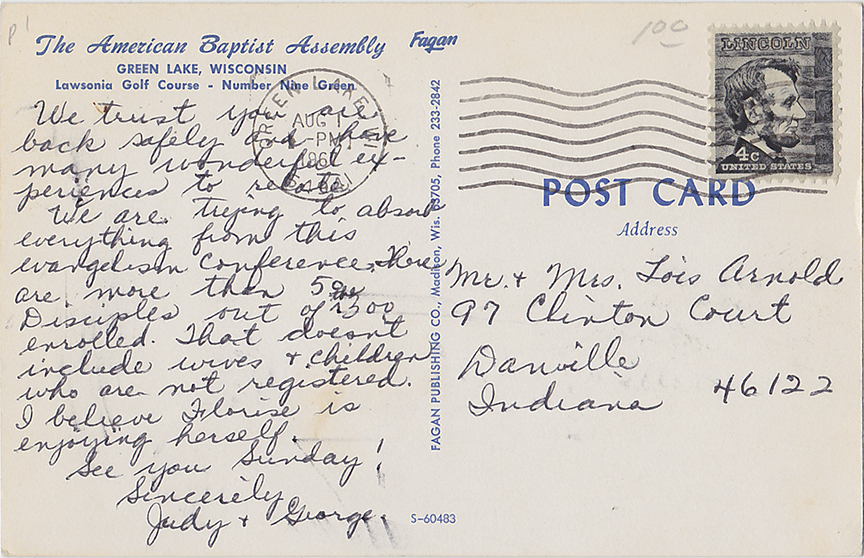 P1
1 00
The American Baptist Assembly Fagan
GREEN LAKE, WISCONSIN
Lawsonia Golf Course - Number Nine Green
We trust you are
back safely and have
many wonderful ex-
periences to relate.
We are trying to absorb
everything from this
evangelism conference. There
are more than
Disciples out of 1500
enrolled. That doesn't
include wives + children
who are not registered.
I believe Florise is
enjoying herself.
See you Sunday!
Sincerely
Judy + George.
FAGAN PUBLISHING CO., Madison, Wis. 53705, Phone 233-2842
S-60483
GREEN LAKE
AUG
PM
LINCOLN
4c
UNITED STATES
POST CARD
Address
Mr. + Mrs. Lois Arnold
97 Clinton Court
Danville
Indiana 46122